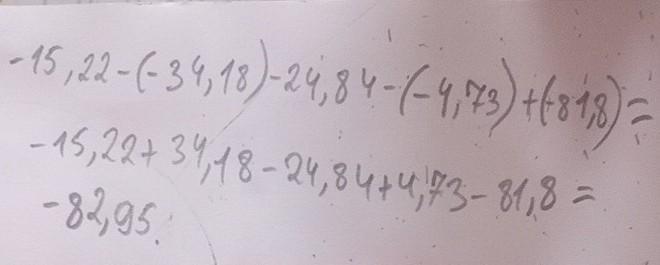 -15,22-(-34,18)-24,84-(-4,73)+(-81,8)=
-15,22+34,18-24,84+4,73-81,8=
-82,95.